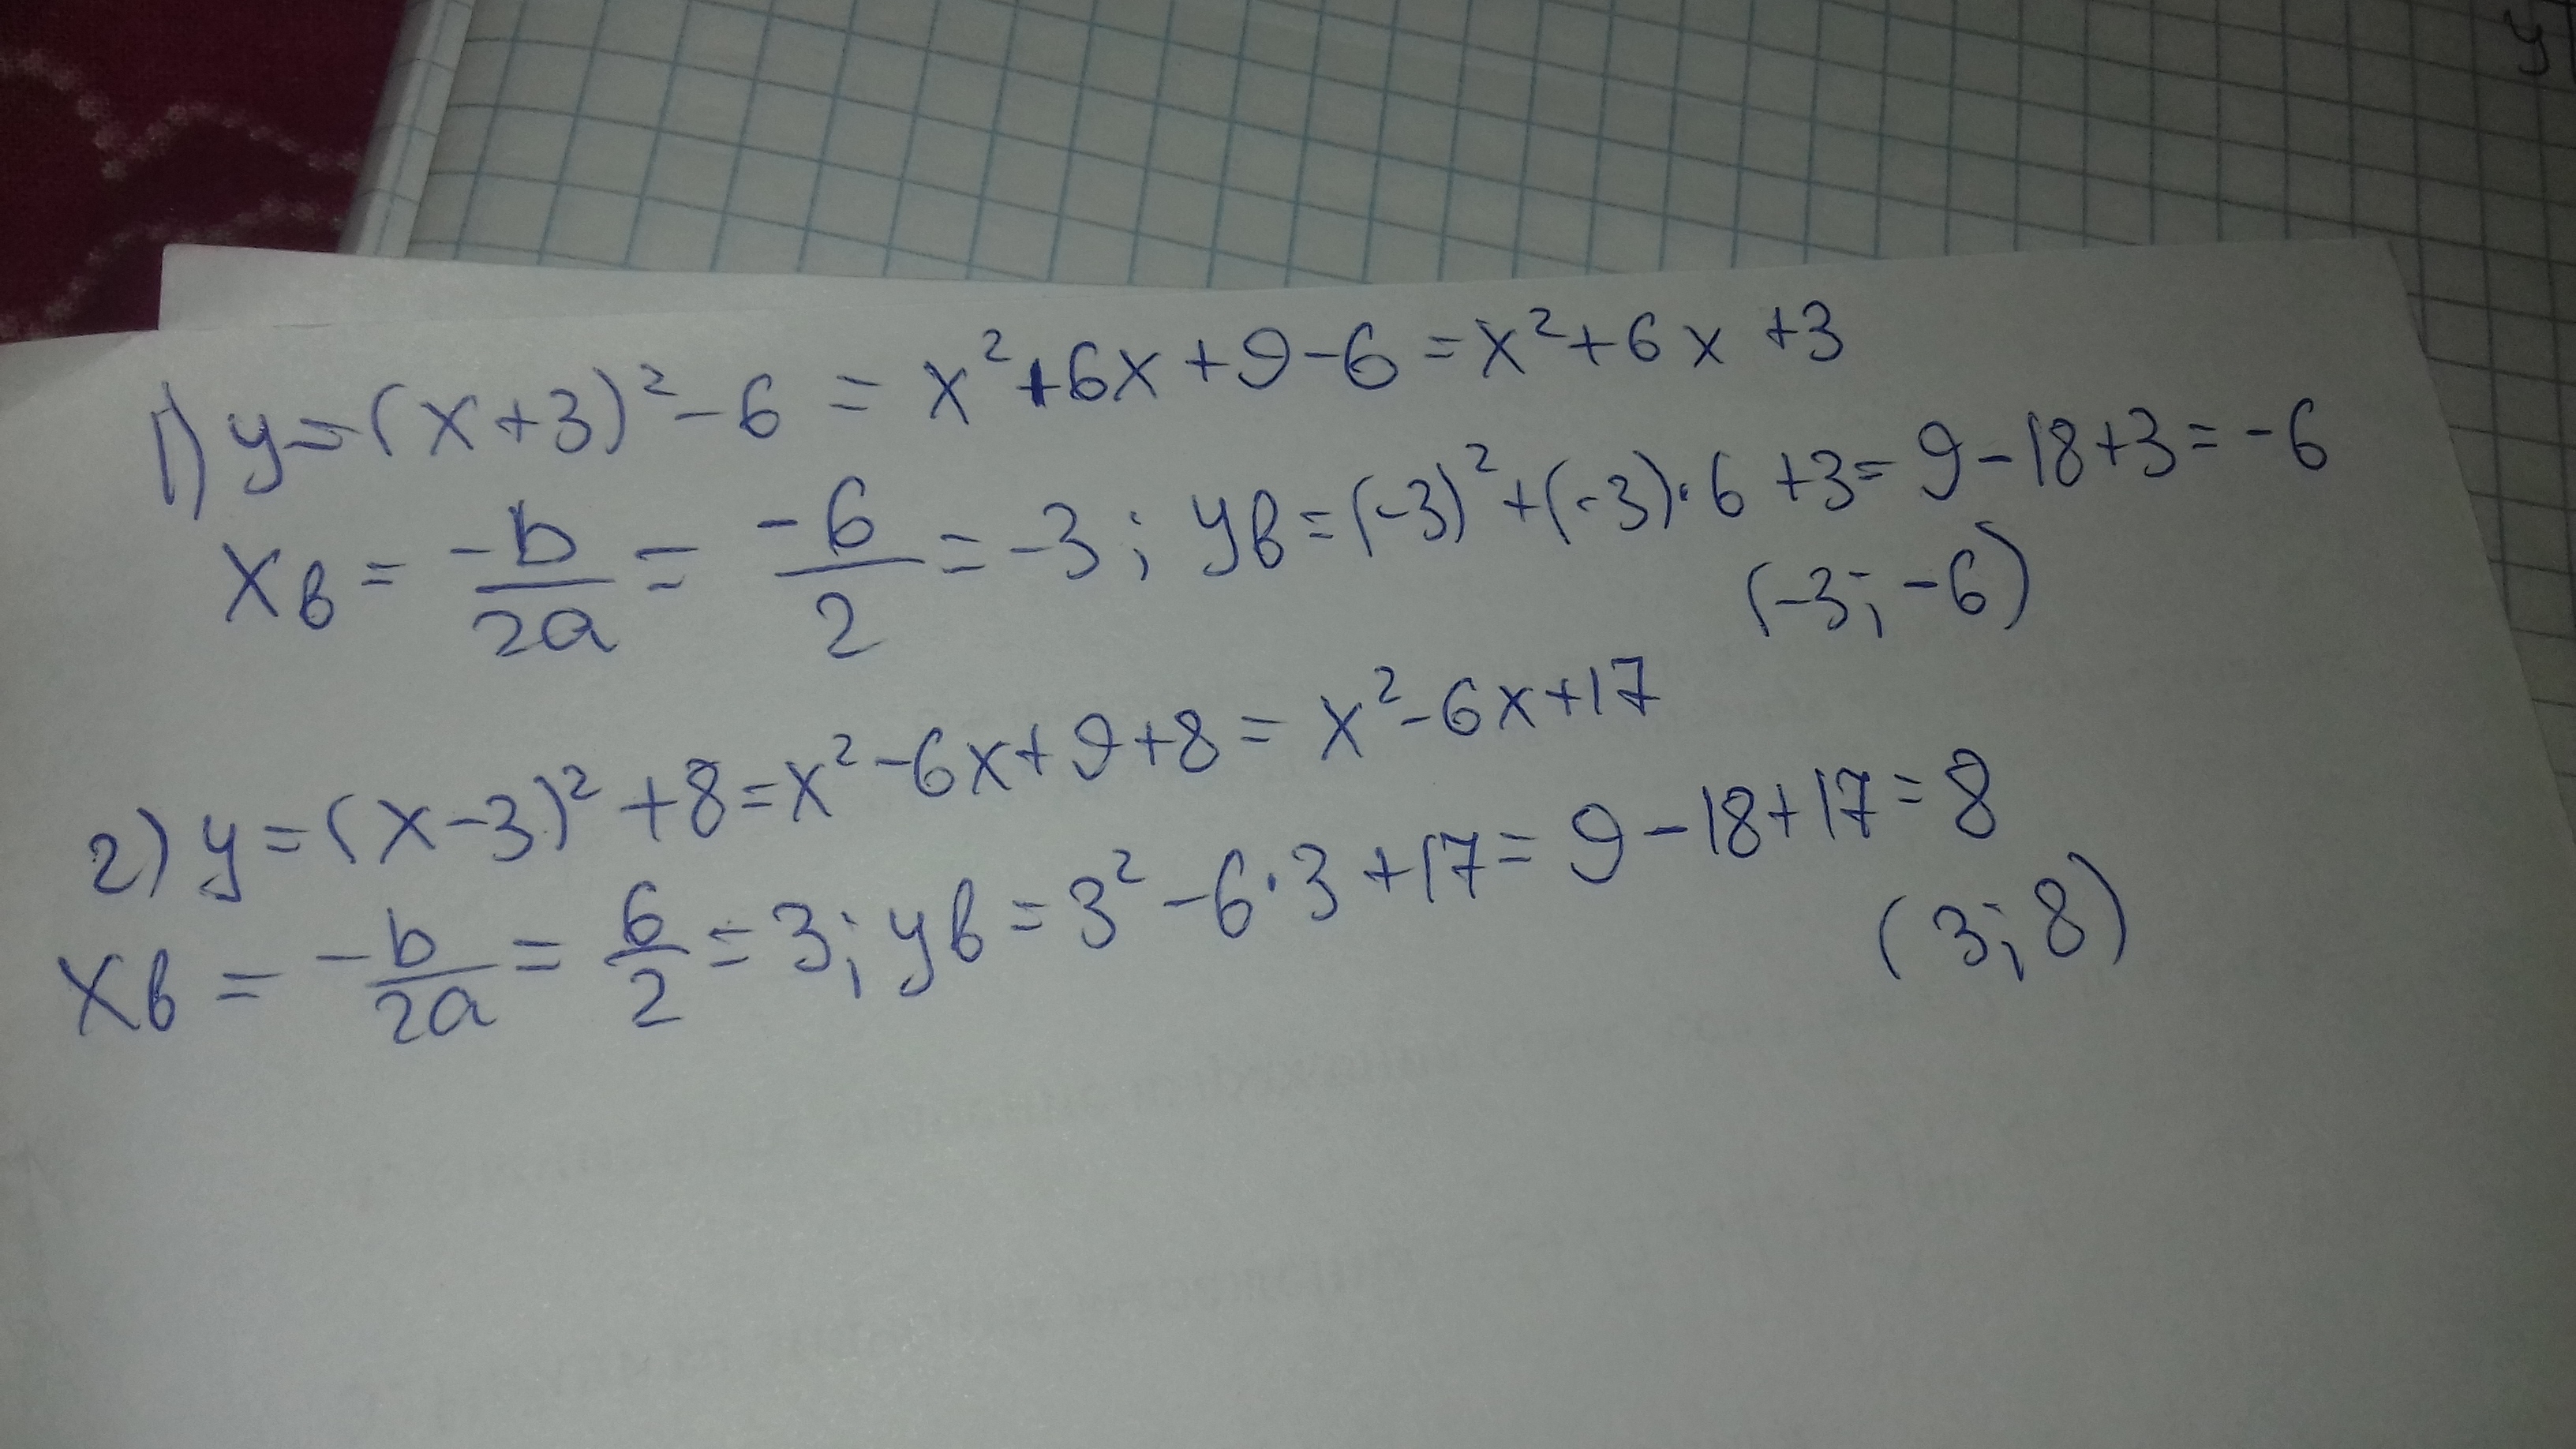 y
1) y=(x+3)²-6 = x²+6x+9-6=x²+6x+3
xв = -b/2a = -6/2 = -3; yв=(-3)²+(-3)·6+3=9-18+3=-6
(-3; -6)
2) y=(x-3)²+8=x²-6x+9+8=x²-6x+17
xв = -b/2a = 6/2 = 3; yв=3²-6·3+17=9-18+17=8
(3; 8)